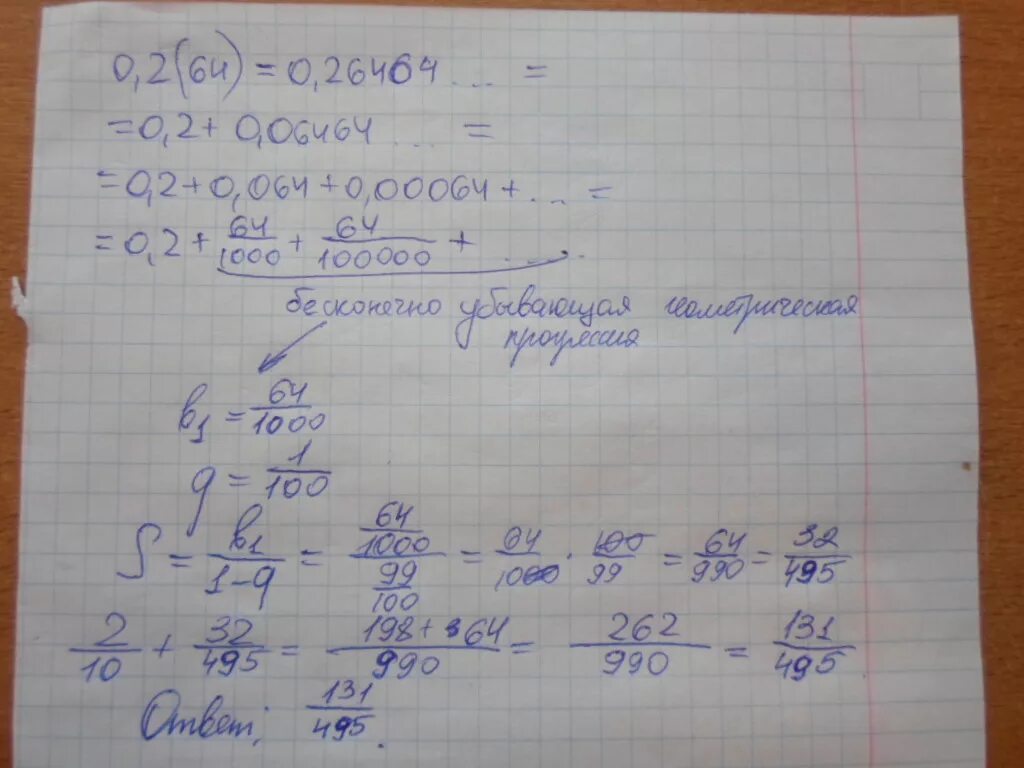 0,2(64) = 0,26464 ... =
= 0,2 + 0,06464 ... =
= 0,2 + 0,064 + 0,00064 + ... =
= 0,2 + 64/1000 + 64/100000 + ...
бесконечно убывающая геометрическая
прогрессия
b₁ = 64/1000
q = 1/100
S = b₁/(1-q) = (64/1000)/(99/100) = 64/1000 · 100/99 = 64/990 = 32/495
2/10 + 32/495 = (198 + 64)/990 = 262/990 = 131/495
Ответ: 131/495.